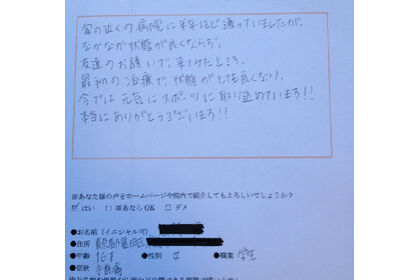 家の近くの病院に半年ほど通っていましたが、
なかなか状態が良くならず、
友達のお誘いで、来てみたところ、
最初の治療で、状態がとても良くなり、
今では元気にスポーツに取り込めています!!
本当にありがとうございます!!
※あなた様の声をホームページや院内で紹介してもよろしいでしょうか?
☑はい □匿名なら OK □ダメ
●お名前(イニシャル可)
●住所 東京都墨田区
●年齢 16才 ●性別 女 ●職業 学生
●症状 手首痛